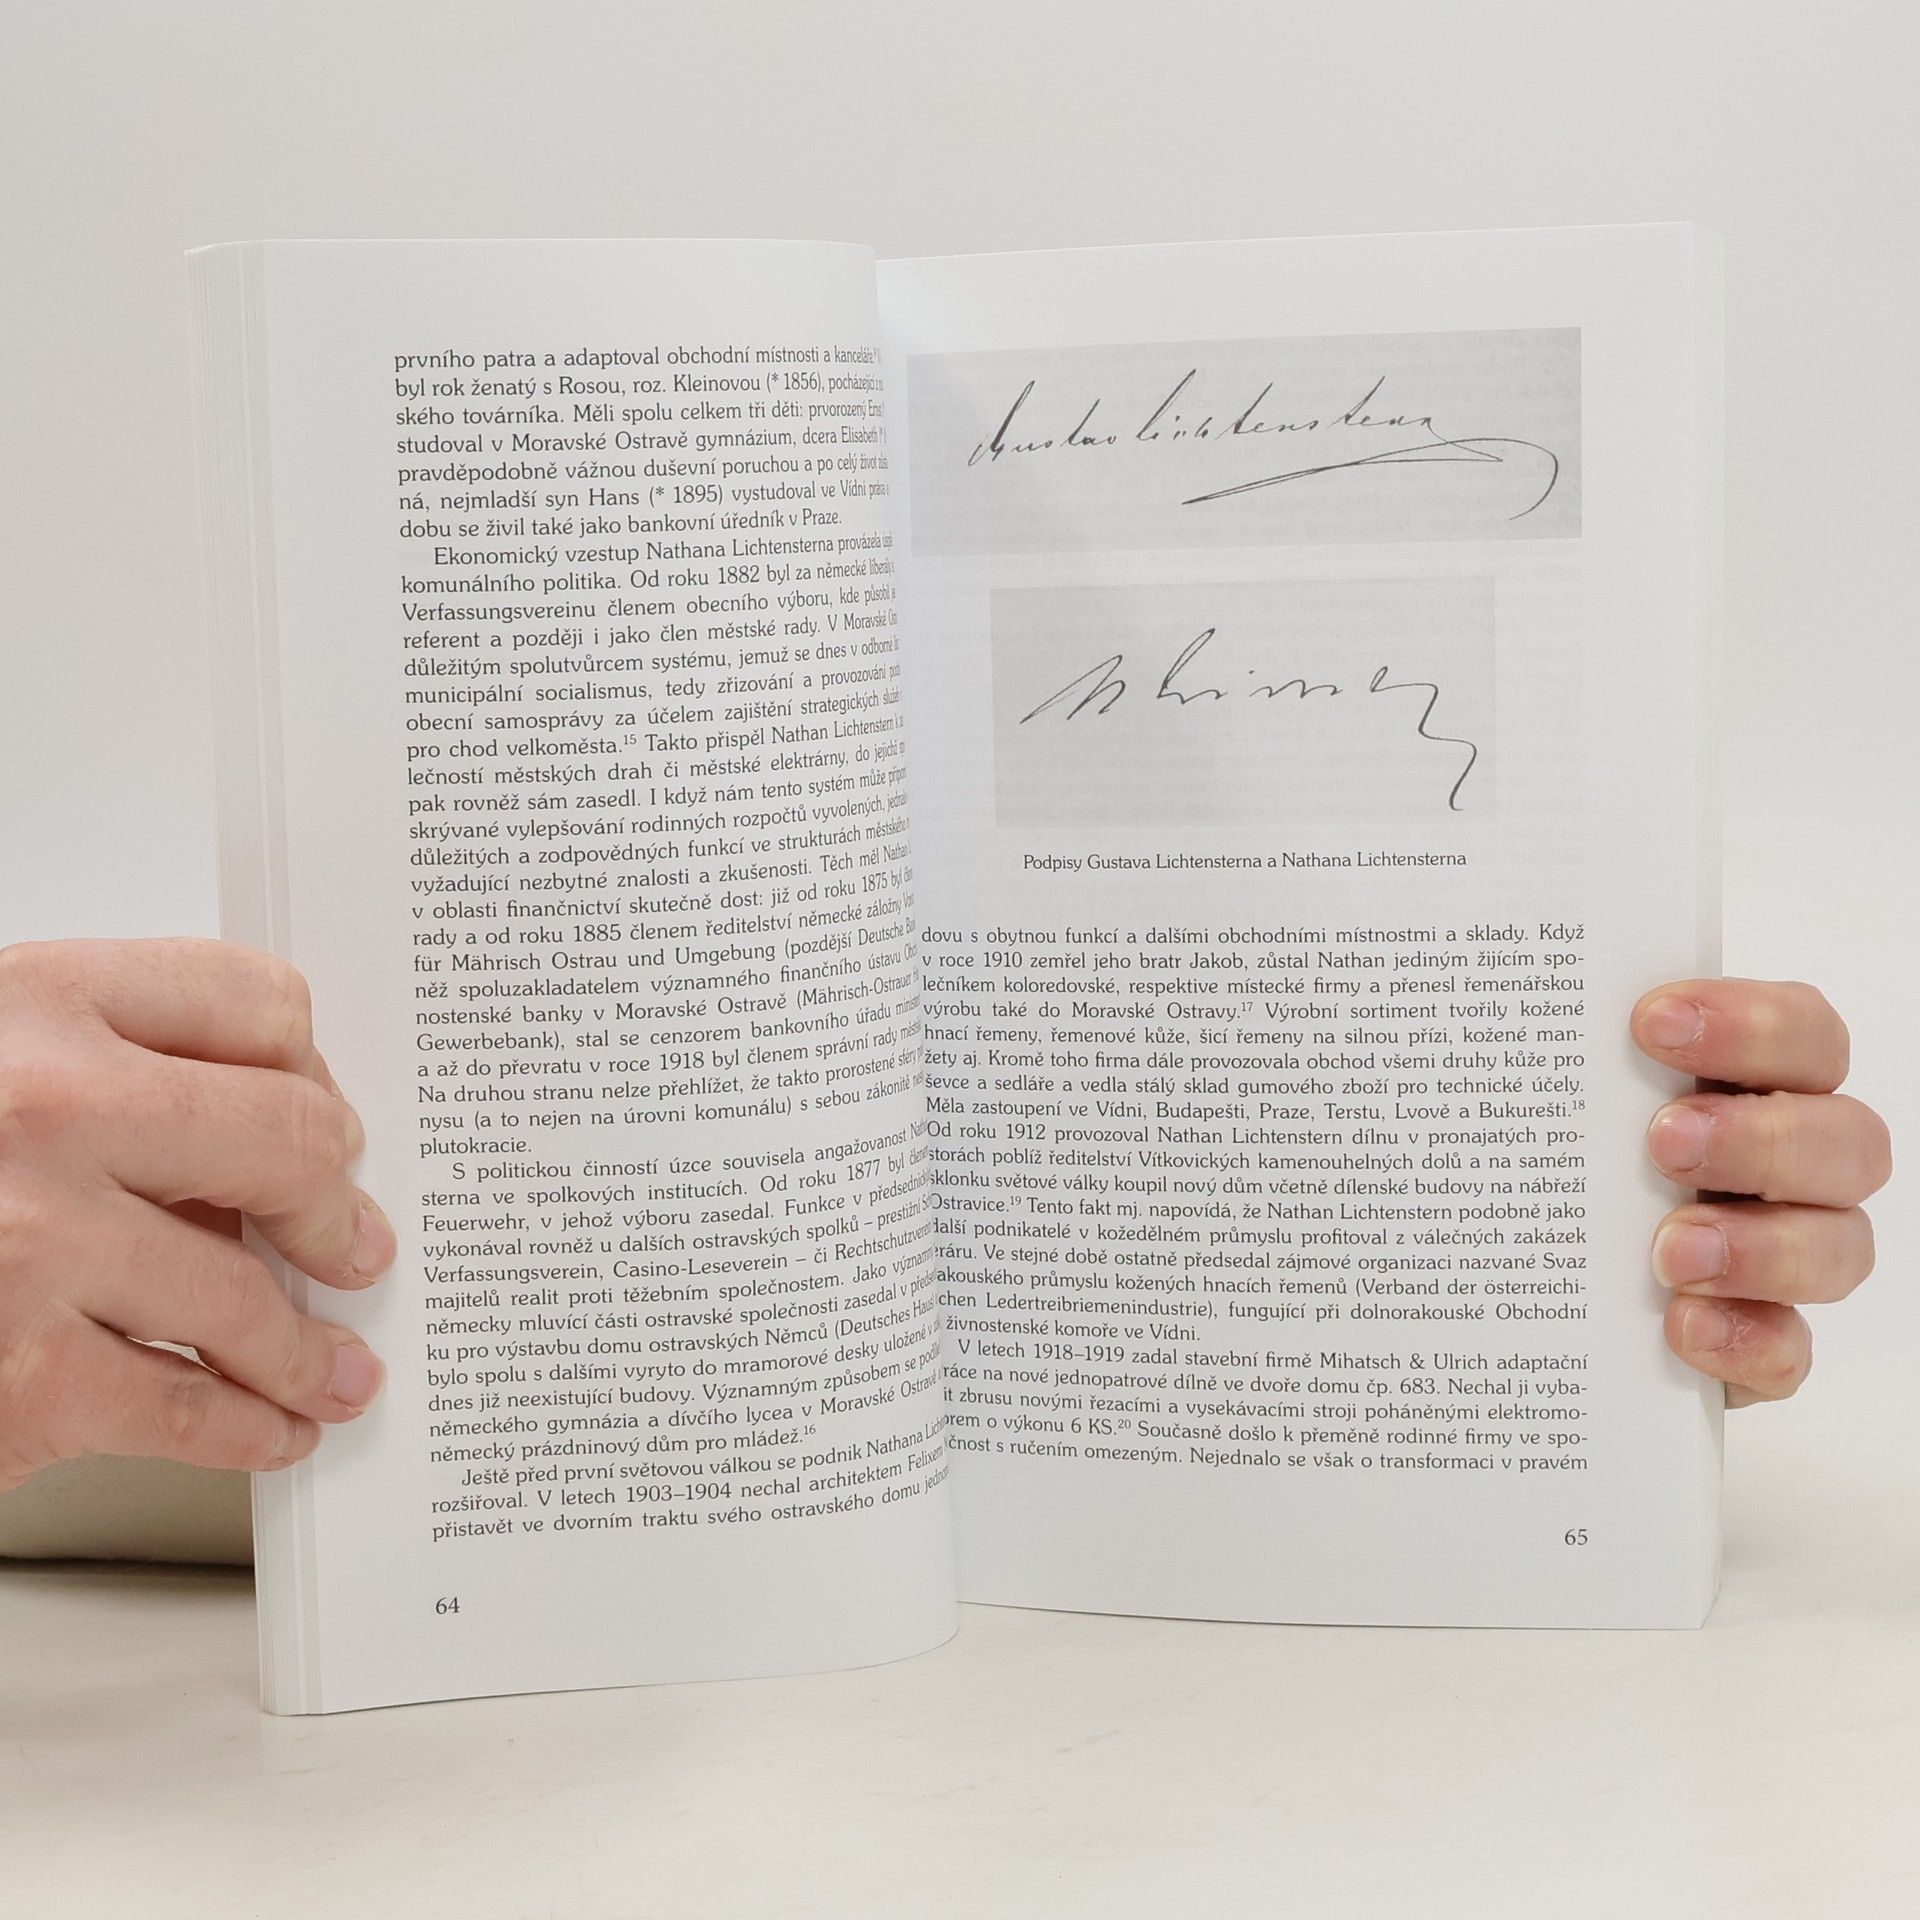 prvního patra a adaptoval obchodní místnosti a kanceláře.
byl rok ženatý s Rosou, roz. Kleinovou (* 1856), pocházející
ského továrníka. Měli spolu celkem tři děti: prvorozený
studoval v Moravské Ostravě gymnázium, dcera Elisabeth
pravděpodobně vážnou duševní poruchou a po celý život
ná, nejmladší syn Hans (* 1895) vystudoval ve Vídni práva
dobu se živil také jako bankovní úředník v Praze.
Ekonomický vzestup Nathana Lichtensterna provázela
komunálního politika. Od roku 1882 byl za německé
Verfassungsvereinu členem obecního výboru, kde působil
referent a později i jako člen městské rady. V Moravské
důležitým spolutvůrcem systému, jemuž se dnes v odborné
municipální socialismus, tedy zřizování a provozování
obecní samosprávy za účelem zajištění strategických
pro chod velkoměsta.15 Takto přispěl Nathan Lichtenstern k
lečností městských drah či městské elektrárny, do jejichž
pak rovněž sám zasedl. I když nám tento systém může
skrývané vylepšování rodinných rozpočtů vyvolených,
důležitých a zodpovědných funkcí ve strukturách městského
vyžadující nezbytné znalosti a zkušenosti. Těch měl Nathan
v oblasti finančnictví skutečně dost: již od roku 1875 byl
rady a od roku 1885 členem ředitelství německé záložny
für Mährisch Ostrau und Umgebung (pozdější Deutsche
něž spoluzakladatelem významného finančního ústavu
nostenské banky v Moravské Ostravě (Mährisch-Ostrauer
Gewerbebank), stal se cenzorem bankovního úřadu
a až do převratu v roce 1918 byl členem správní rady
Na druhou stranu nelze přehlížet, že takto prorostené sféry
nysu (a to nejen na úrovni komunálu) s sebou zákonitě
plutokracie.
S politickou činností úzce souvisela angažovanost
sterna ve spolkových institucích. Od roku 1877 byl
Feuerwehr, v jehož výboru zasedal. Funkce v
vykonával rovněž u dalších ostravských spolků – prestižní
Verfassungsverein, Casino-Leseverein – či Rechtschutzverein
majitelů realit proti těžebním společnostem. Jako
německy mluvící části ostravské společnosti zasedal v
ku pro výstavbu domu ostravských Němců (Deutsches Haus)
bylo spolu s dalšími vyryto do mramorové desky uložené v
dnes již neexistující budovy. Významným způsobem se
německého gymnázia a dívčího lycea v Moravské Ostravě
německý prázdninový dům pro mládež.16
Ještě před první světovou válkou se podnik Nathana
rozšiřoval. V letech 1903–1904 nechal architektem Felixem
přistavět ve dvorním traktu svého ostravského domu
64
Gustav Lichtenstern
Podpisy Gustava Lichtensterna a Nathana Lichtensterna
dovu s obytnou funkcí a dalšími obchodními místnostmi a sklady. Když
v roce 1910 zemřel jeho bratr Jakob, zůstal Nathan jediným žijícím spo-
lečníkem koloredovské, respektive místecké firmy a přenesl řemenářskou
výrobu také do Moravské Ostravy.17 Výrobní sortiment tvořily kožené
hnací řemeny, řemenové kůže, šicí řemeny na silnou přízi, kožené man-
žety aj. Kromě toho firma dále provozovala obchod všemi druhy kůže pro
ševce a sedláře a vedla stálý sklad gumového zboží pro technické účely.
Měla zastoupení ve Vídni, Budapešti, Praze, Terstu, Lvově a Bukurešti.18
Od roku 1912 provozoval Nathan Lichtenstern dílnu v pronajatých pro-
storách poblíž ředitelství Vítkovických kamenouhelných dolů a na samém
sklonku světové války koupil nový dům včetně dílenské budovy na nábřeží
Ostravice.19 Tento fakt mj. napovídá, že Nathan Lichtenstern podobně jako
další podnikatelé v kožedělném průmyslu profitoval z válečných zakázek
eráru. Ve stejné době ostatně předsedal zájmové organizaci nazvané Svaz
akouského průmyslu kožených hnacích řemenů (Verband der österreichi-
chen Ledertreibriemenindustrie), fungující při dolnorakouské Obchodní
živnostenské komoře ve Vídni.
V letech 1918–1919 zadal stavební firmě Mihatsch & Ulrich adaptační
ráce na nové jednopatrové dílně ve dvoře domu čp. 683. Nechal ji vyba-
it zbrusu novými řezacími a vysekávacími stroji poháněnými elektromo-
orem o výkonu 6 KS.20 Současně došlo k přeměně rodinné firmy ve spo-
čnost s ručením omezeným. Nejednalo se však o transformaci v pravém
65